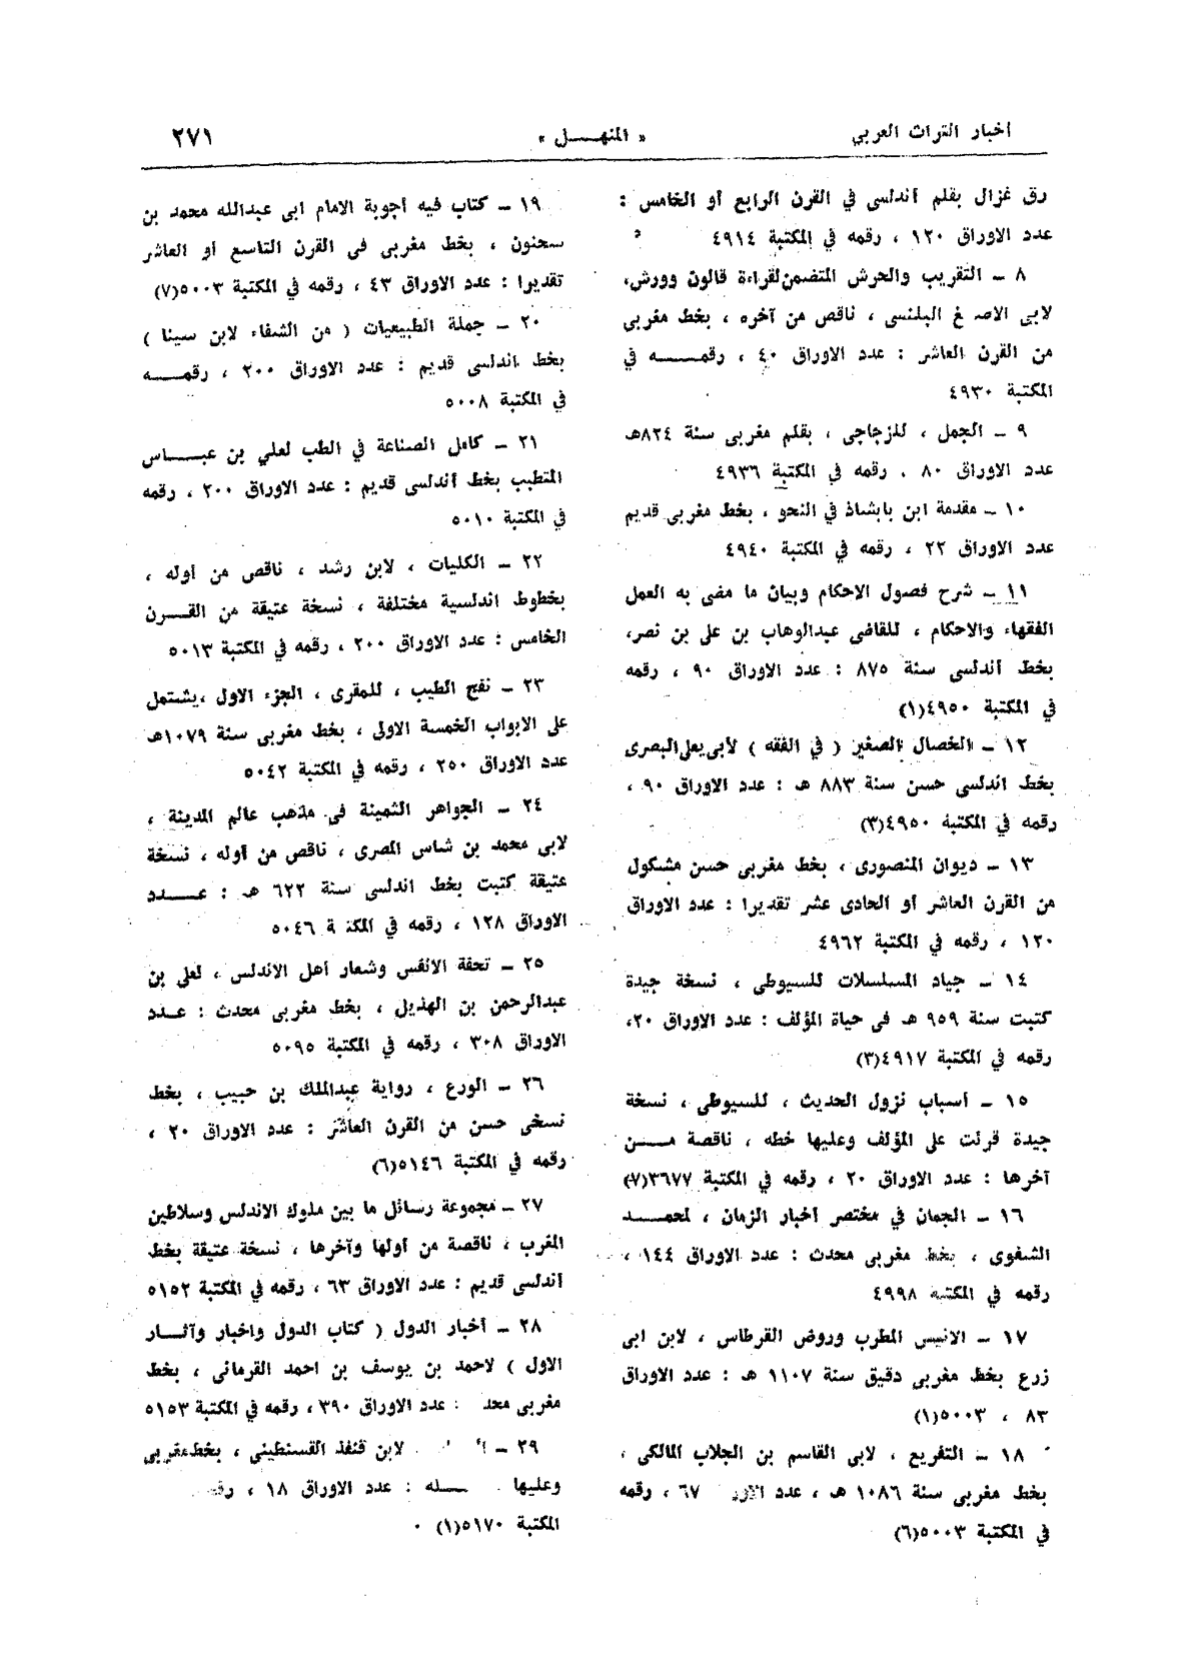 اخبار التراث العربي
« المنهـــل »
٢٧١
رق غزال بقلم أندلسى في القرن الرابع أو الخامس :
عدد الاوراق ١٢٠ ، رقمه في المكتبة ٤٩١٤
٨ ــ التقريب والحرش المتضمن لقراءة قالون وورش،
لابى الاصـ ـغ البلنسى ، ناقص من آخره ، بخط مغربى
من القرن العاشر : عدد الاوراق ٤٠ ، رقمــــه في
المكتبة ٤٩٣٠
٩ ــ الجمل ، للزجاجى ، بقلم مغربى سنة ٨٢٤هـ
عدد الاوراق ٨٠ ، رقمه في المكتبة ٤٩٣٦
١٠ ــ مقدمة ابن بابشاذ في النحو ، بخط مغربى قديم
عدد الاوراق ٢٢ ، رقمه في المكتبة ٤٩٤٠
١١ ــ شرح فصول الاحكام وبيان ما مضى به العمل
الفقهاء والاحكام ، للقاضى عبدالوهاب بن على بن نصر،
بخط أندلسى سنة ٨٧٥ : عدد الاوراق ٩٠ ، رقمه
في المكتبة ٤٩٥٠(١)
١٢ ــ الخصال الصغير ( في الفقه ) لأبى يعلى البصرى
بخط اندلسى حسن سنة ٨٨٣ هـ : عدد الاوراق ٩٠ ،
رقمه في المكتبة ٤٩٥٠(٣)
١٣ ــ ديوان المنصورى ، بخط مغربى حسن مشكول
من القرن العاشر أو الحادى عشر تقديرا : عدد الاوراق
١٢٠ ، رقمه في المكتبة ٤٩٦٢
١٤ ــ جياد المسلسلات للسيوطى ، نسخة جيدة
كتبت سنة ٩٥٩ هـ فى حياة المؤلف : عدد الاوراق ٢٠،
رقمه في المكتبة ٤٩١٧(٣)
١٥ ــ أسباب نزول الحديث ، للسيوطى ، نسخة
جيدة قرئت على المؤلف وعليها خطه ، ناقصة مــــن
آخرها : عدد الاوراق ٢٠ ، رقمه في المكتبة ٣٦٧٧(٧)
١٦ ــ الجمان في مختصر أخبار الزمان ، لمحمـــد
الشفوى ، بخط مغربى محدث : عدد الاوراق ١٤٤ ،
رقمه في المكتبة ٤٩٩٨
١٧ ــ الانيس المطرب وروض القرطاس ، لابن ابى
زرع بخط مغربى دقيق سنة ١١٠٧ هـ : عدد الاوراق
٨٣ ، ٥٠٠٣(١)
١٨ ــ التفريع ، لابى القاسم بن الجلاب المالكى ،
بخط مغربى سنة ١٠٨٦ هـ ، عدد الاور ٦٧ ، رقمه
في المكتبة ٥٠٠٣(٦)
١٩ ــ كتاب فيه أجوبة الامام ابى عبدالله محمد بن
سحنون ، بخط مغربى فى القرن التاسع أو العاشر
تقديرا : عدد الاوراق ٤٣ ، رقمه في المكتبة ٥٠٠٣(٧)
٢٠ ــ جملة الطبيعيات ( من الشفاء لابن سينا )
بخط اندلسى قديم : عدد الاوراق ٢٠٠ ، رقمـــه
في المكتبة ٥٠٠٨
٢١ ــ كامل الصناعة في الطب لعلي بن عبـــاس
المتطبب بخط أندلسى قديم : عدد الاوراق ٢٠٠ ، رقمه
في المكتبة ٥٠١٠
٢٢ ــ الكليات ، لابن رشد ، ناقص من أوله ،
بخطوط اندلسية مختلفة ، نسخة عتيقة من القـــرن
الخامس : عدد الاوراق ٢٠٠ ، رقمه في المكتبة ٥٠١٣
٢٣ ــ نفح الطيب ، للمقرى ، الجزء الاول ،يشتمل
على الابواب الخمسة الاولى ، بخط مغربى سنة ١٠٧٩هـ
عدد الاوراق ٢٥٠ ، رقمه في المكتبة ٥٠٤٢
٢٤ ــ الجواهر الثمينة فى مذهب عالم المدينة ،
لابى محمد بن شاس المصرى ، ناقص من أوله ، نسخة
عتيقة كتبت بخط اندلسى سنة ٦٢٢ هـ : عـــدد
الاوراق ١٢٨ ، رقمه في المكتـ ـة ٥٠٤٦
٢٥ ــ تحفة الانفس وشعار أهل الاندلس ، لعلى بن
عبدالرحمن بن الهذيل ، بخط مغربى محدث : عــدد
الاوراق ٣٠٨ ، رقمه في المكتبة ٥٠٩٥
٢٦ ــ الورع ، رواية عبدالملك بن حبيب ، بخط
نسخى حسن من القرن العاشر : عدد الاوراق ٢٠ ،
رقمه في المكتبة ٥١٤٦(٦)
٢٧ ــ مجموعة رسائل ما بين ملوك الاندلس وسلاطين
المغرب ، ناقصة من أولها وآخرها ، نسخة عتيقة بخط
أندلسى قديم : عدد الاوراق ٦٣ ، رقمه في المكتبة ٥١٥٢
٢٨ ــ أخبار الدول ( كتاب الدول واخبار وآثــار
الاول ) لاحمد بن يوسف بن احمد القرمانى ، بخط
مغربى محد : عدد الاوراق ٣٩٠ ، رقمه في المكتبة ٥١٥٣
٢٩ ــ لابن قنفذ القسنطيني ، بخط مغربى
وعليها : عدد الاوراق ١٨ ،
المكتبة ٥١٧٠(١) ٠